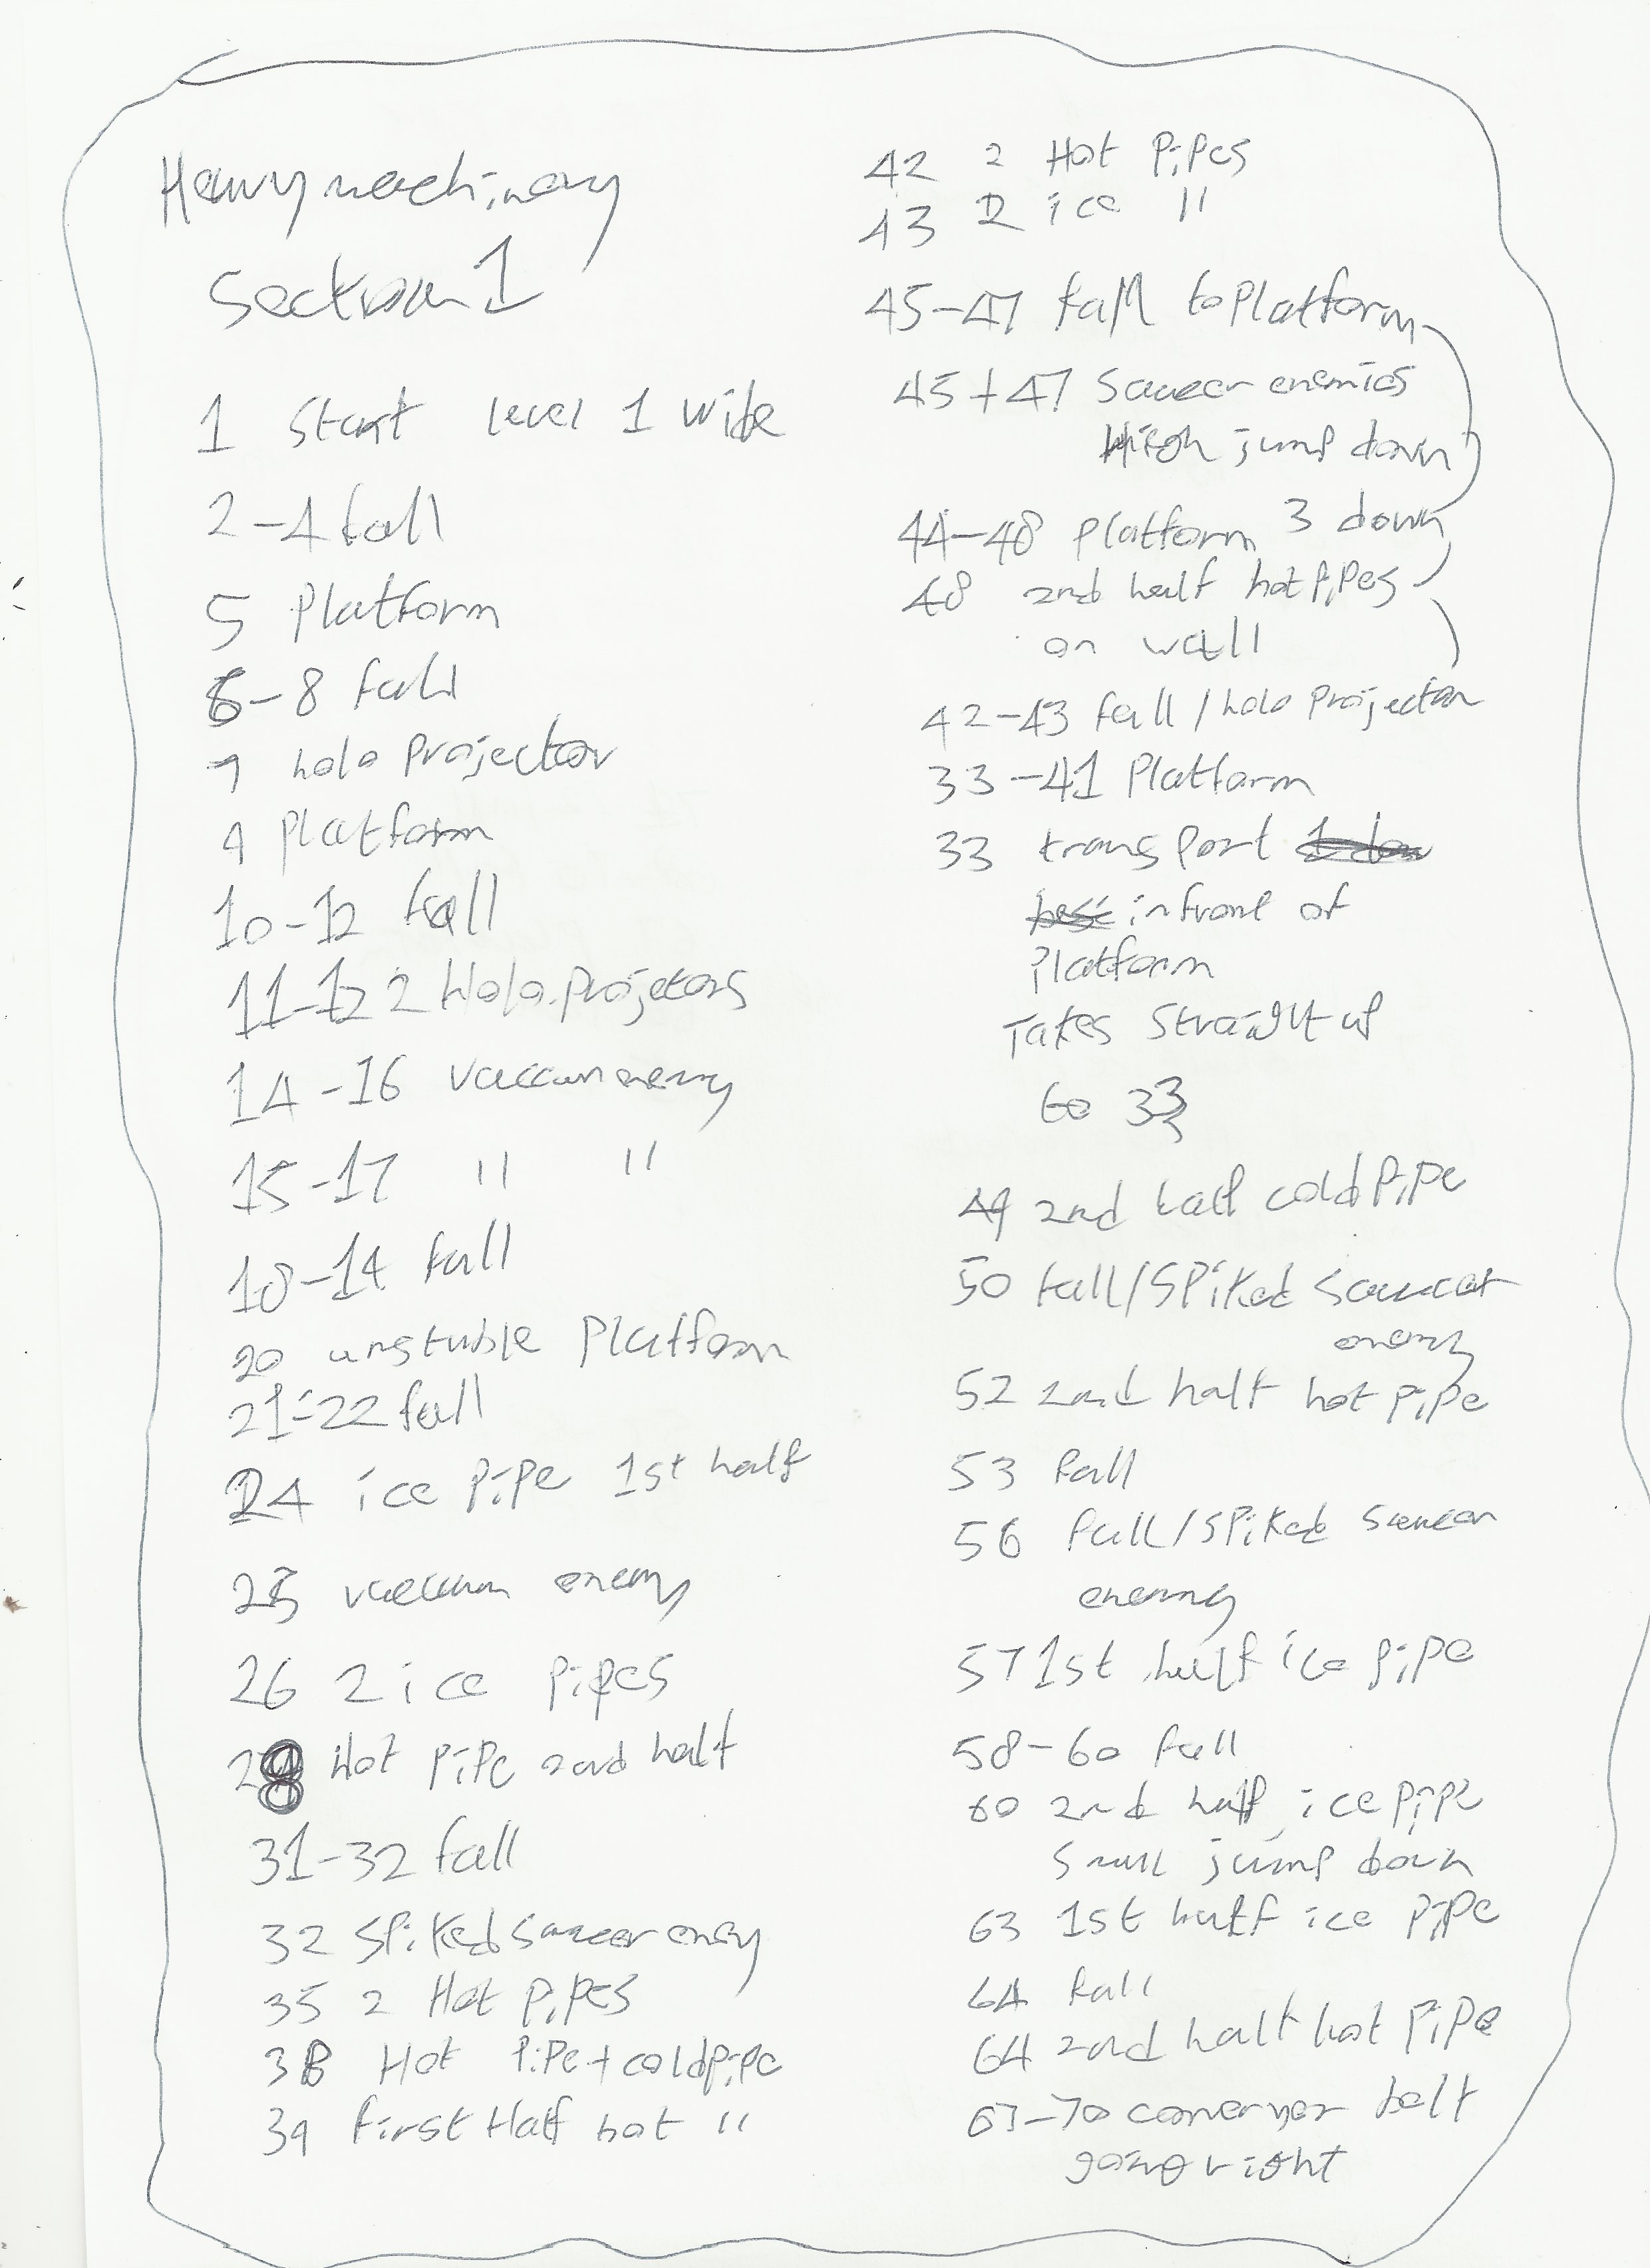 Heavy machinery
Section 1
1 Start level 1 wide
2-4 fall
5 Platform
6-8 fall
7 holo projector
9 platform
10-12 fall
11-12 2 Holo projectors
14-16 vaccum enemy
15-17 " "
18-19 fall
20 unstable Platform
21-22 fall
24 ice pipe 1st half
25 vaccum enemy
26 2 ice pipes
28 Hot pipe 2nd half
31-32 fall
32 Spiked saucer enemy
35 2 Hot pipes
38 Hot pipe + cold pipe
39 first Half hot "
42 2 Hot Pipes
43 2 ice "
45-47 fall to Platform
45+47 Saucer enemies
High jump down
44-48 platform 3 down
48 2nd half hot pipes
on wall
42-43 fall / holo projector
33-41 Platform
33 transport
in front of
Platform
Takes straight up
to 33
49 2nd half cold Pipe
50 fall/Spiked saucer
enemy
52 2nd half hot pipe
53 fall
56 fall/spiked saucer
enemy
57 1st half ice pipe
58-60 fall
60 2nd half ice pipe
small jump down
63 1st half ice pipe
64 fall
64 2nd half hot pipe
67-70 conveyer belt
going right